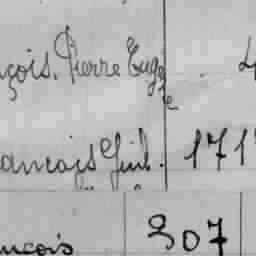 çois, Pierre Eugène
ançois Guil. 171
nçois 307